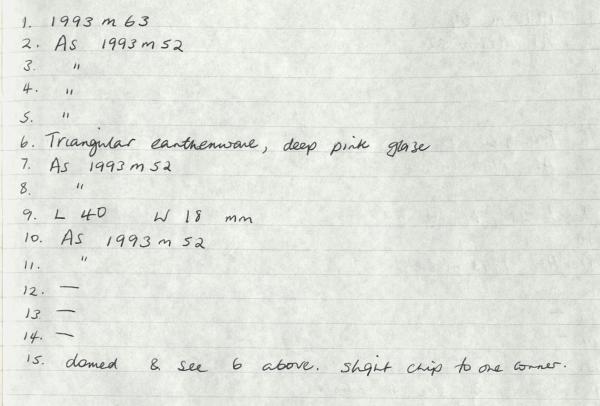 1. 1993 m 63
2. As 1993 m 52
3. "
4. "
5. "
6. Triangular earthenware, deep pink glaze
7. As 1993 m 52
8. "
9. L 40 W 18 mm
10. As 1993 m 52
11. "
12. —
13. —
14. —
15. domed & see 6 above. slight chip to one corner.